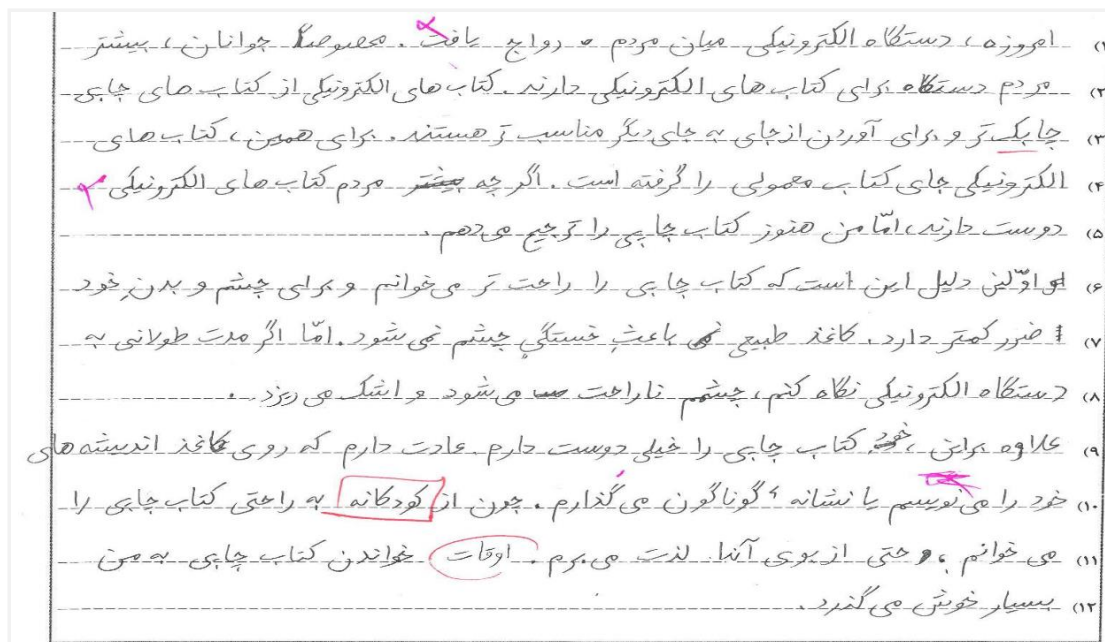 ۱) امروزه، دستگاه الکترونیکی میان مردم رواج یافت. مخصوصاً جوانان، بیشتر
۲) مردم دستگاه برای کتاب های الکترونیکی دارند. کتاب های الکترونیکی از کتاب های چاپی
۳) چابک تر و برای آوردن از جای به جای دیگر مناسب تر هستند. برای همین، کتاب های
۴) الکترونیکی جای کتاب معمولی را گرفته است. اگر چه بیشتر مردم کتاب های الکترونیکی
۵) دوست دارند، امّا من هنوز کتاب چاپی را ترجیح می دهم.
۶) اوّلین دلیل این است که کتاب چاپی را راحت تر می خوانم و برای چشم و بدنِ خود
۷) ضرر کمتر دارد. کاغذ طبیعی باعثِ خستگیِ چشم نمی شود. امّا اگر مدت طولانی به
۸) دستگاه الکترونیکی نگاه کنم، چشمم ناراحت می شود و اشک می ریزد.
۹) علاوه براین، کتاب چاپی را خیلی دوست دارم. عادت دارم که روی کاغذ اندیشه های
۱۰) خود را می نویسم یا نشانه ء گوناگون می گذارم. چون از کودکانه به راحتی کتاب چاپی را
۱۱) می خوانم، حتی از بوی آنها لذت می برم. اوقات خواندن کتاب چاپی به من
۱۲) بسیار خوش می گذرد.